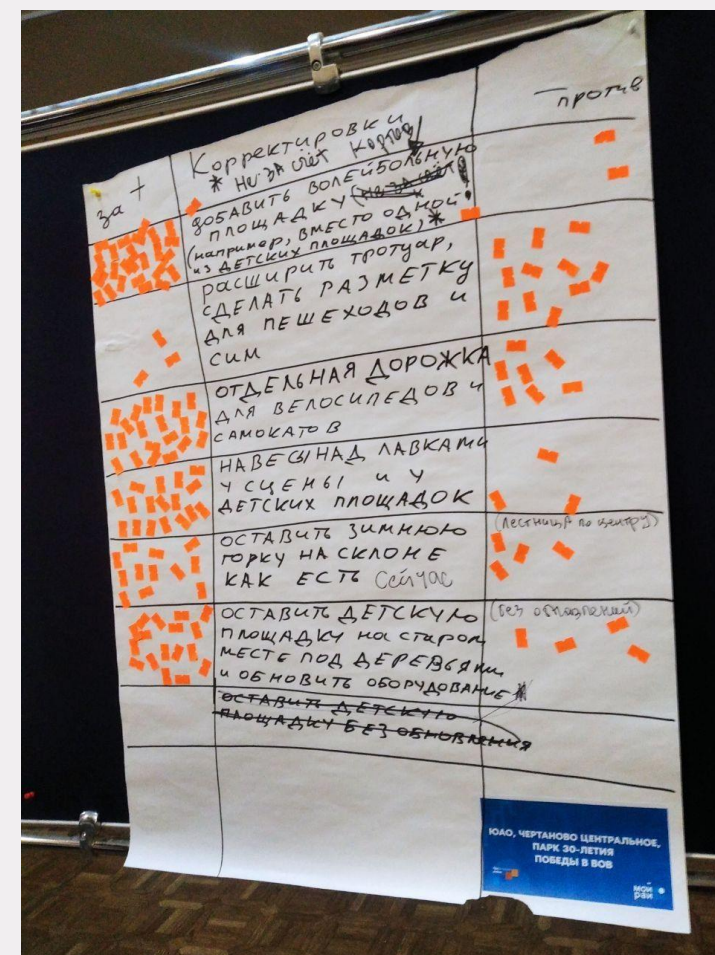 за +
Корректировки
* не за счёт кортов!
против
добавить волейбольную
площадку (не за счёт
(например, вместо одной
из детских площадок)*
расширить тротуар,
сделать разметку
для пешеходов и
сим
отдельная дорожка
для велосипедов и
самокатов
навесы над лавками
у сцены и у
детских площадок
оставить зимнюю
горку на склоне
как есть сейчас
(лестница по центру)
оставить детскую
площадку на старом
месте под деревьями
и обновить оборудование*
(без обновлений)
оставить детскую
площадку без обновления
ЮАО, ЧЕРТАНОВО ЦЕНТРАЛЬНОЕ,
ПАРК 30-ЛЕТИЯ
ПОБЕДЫ В ВОВ
мой
район